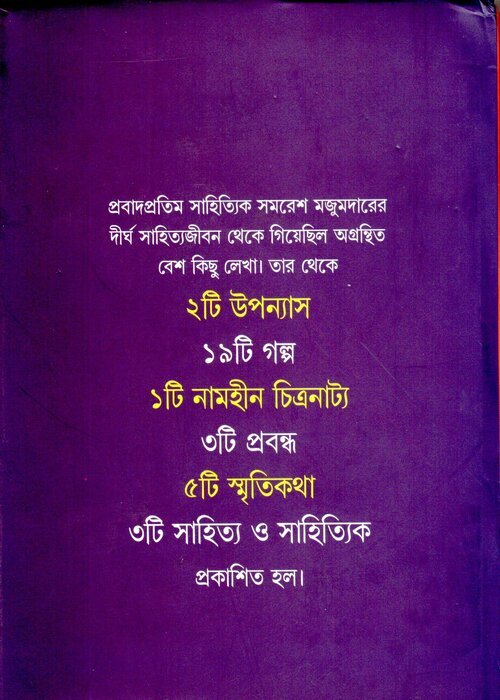 প্রবাদপ্রতিম সাহিত্যিক সমরেশ মজুমদারের
দীর্ঘ সাহিত্যজীবন থেকে গিয়েছিল অগ্রন্থিত
বেশ কিছু লেখা। তার থেকে
২টি উপন্যাস
১৯টি গল্প
১টি নামহীন চিত্রনাট্য
৩টি প্রবন্ধ
৫টি স্মৃতিকথা
৩টি সাহিত্য ও সাহিত্যিক
প্রকাশিত হল।